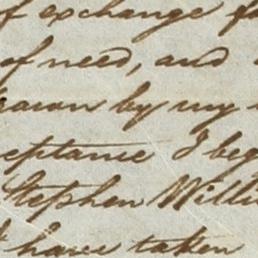 of exchange fo
of need, and
rawn by my
eptance I beg
Stephen Willi
I have taken